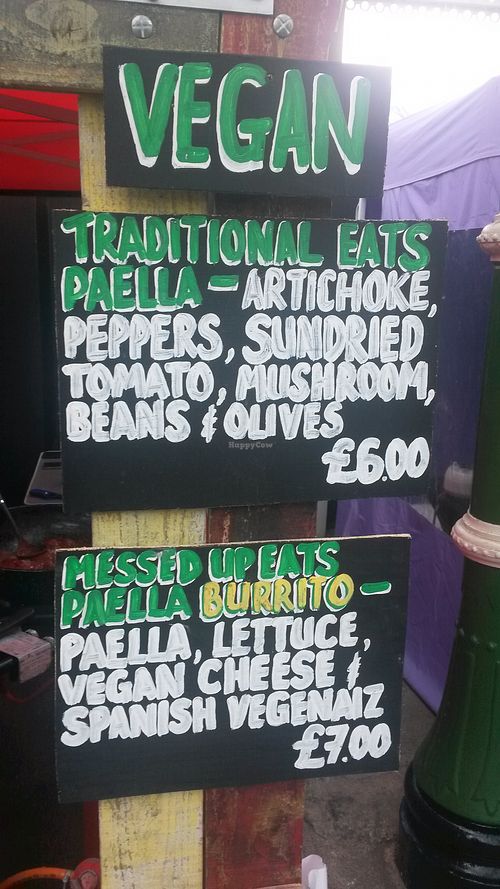 VEGAN
TRADITIONAL EATS
PAELLA - ARTICHOKE,
PEPPERS, SUNDRIED
TOMATO, MUSHROOM,
BEANS & OLIVES
HappyCow
£6.00
MESSED UP EATS
PAELLA BURRITO -
PAELLA, LETTUCE,
VEGAN CHEESE &
SPANISH VEGENAIZ
£7.00